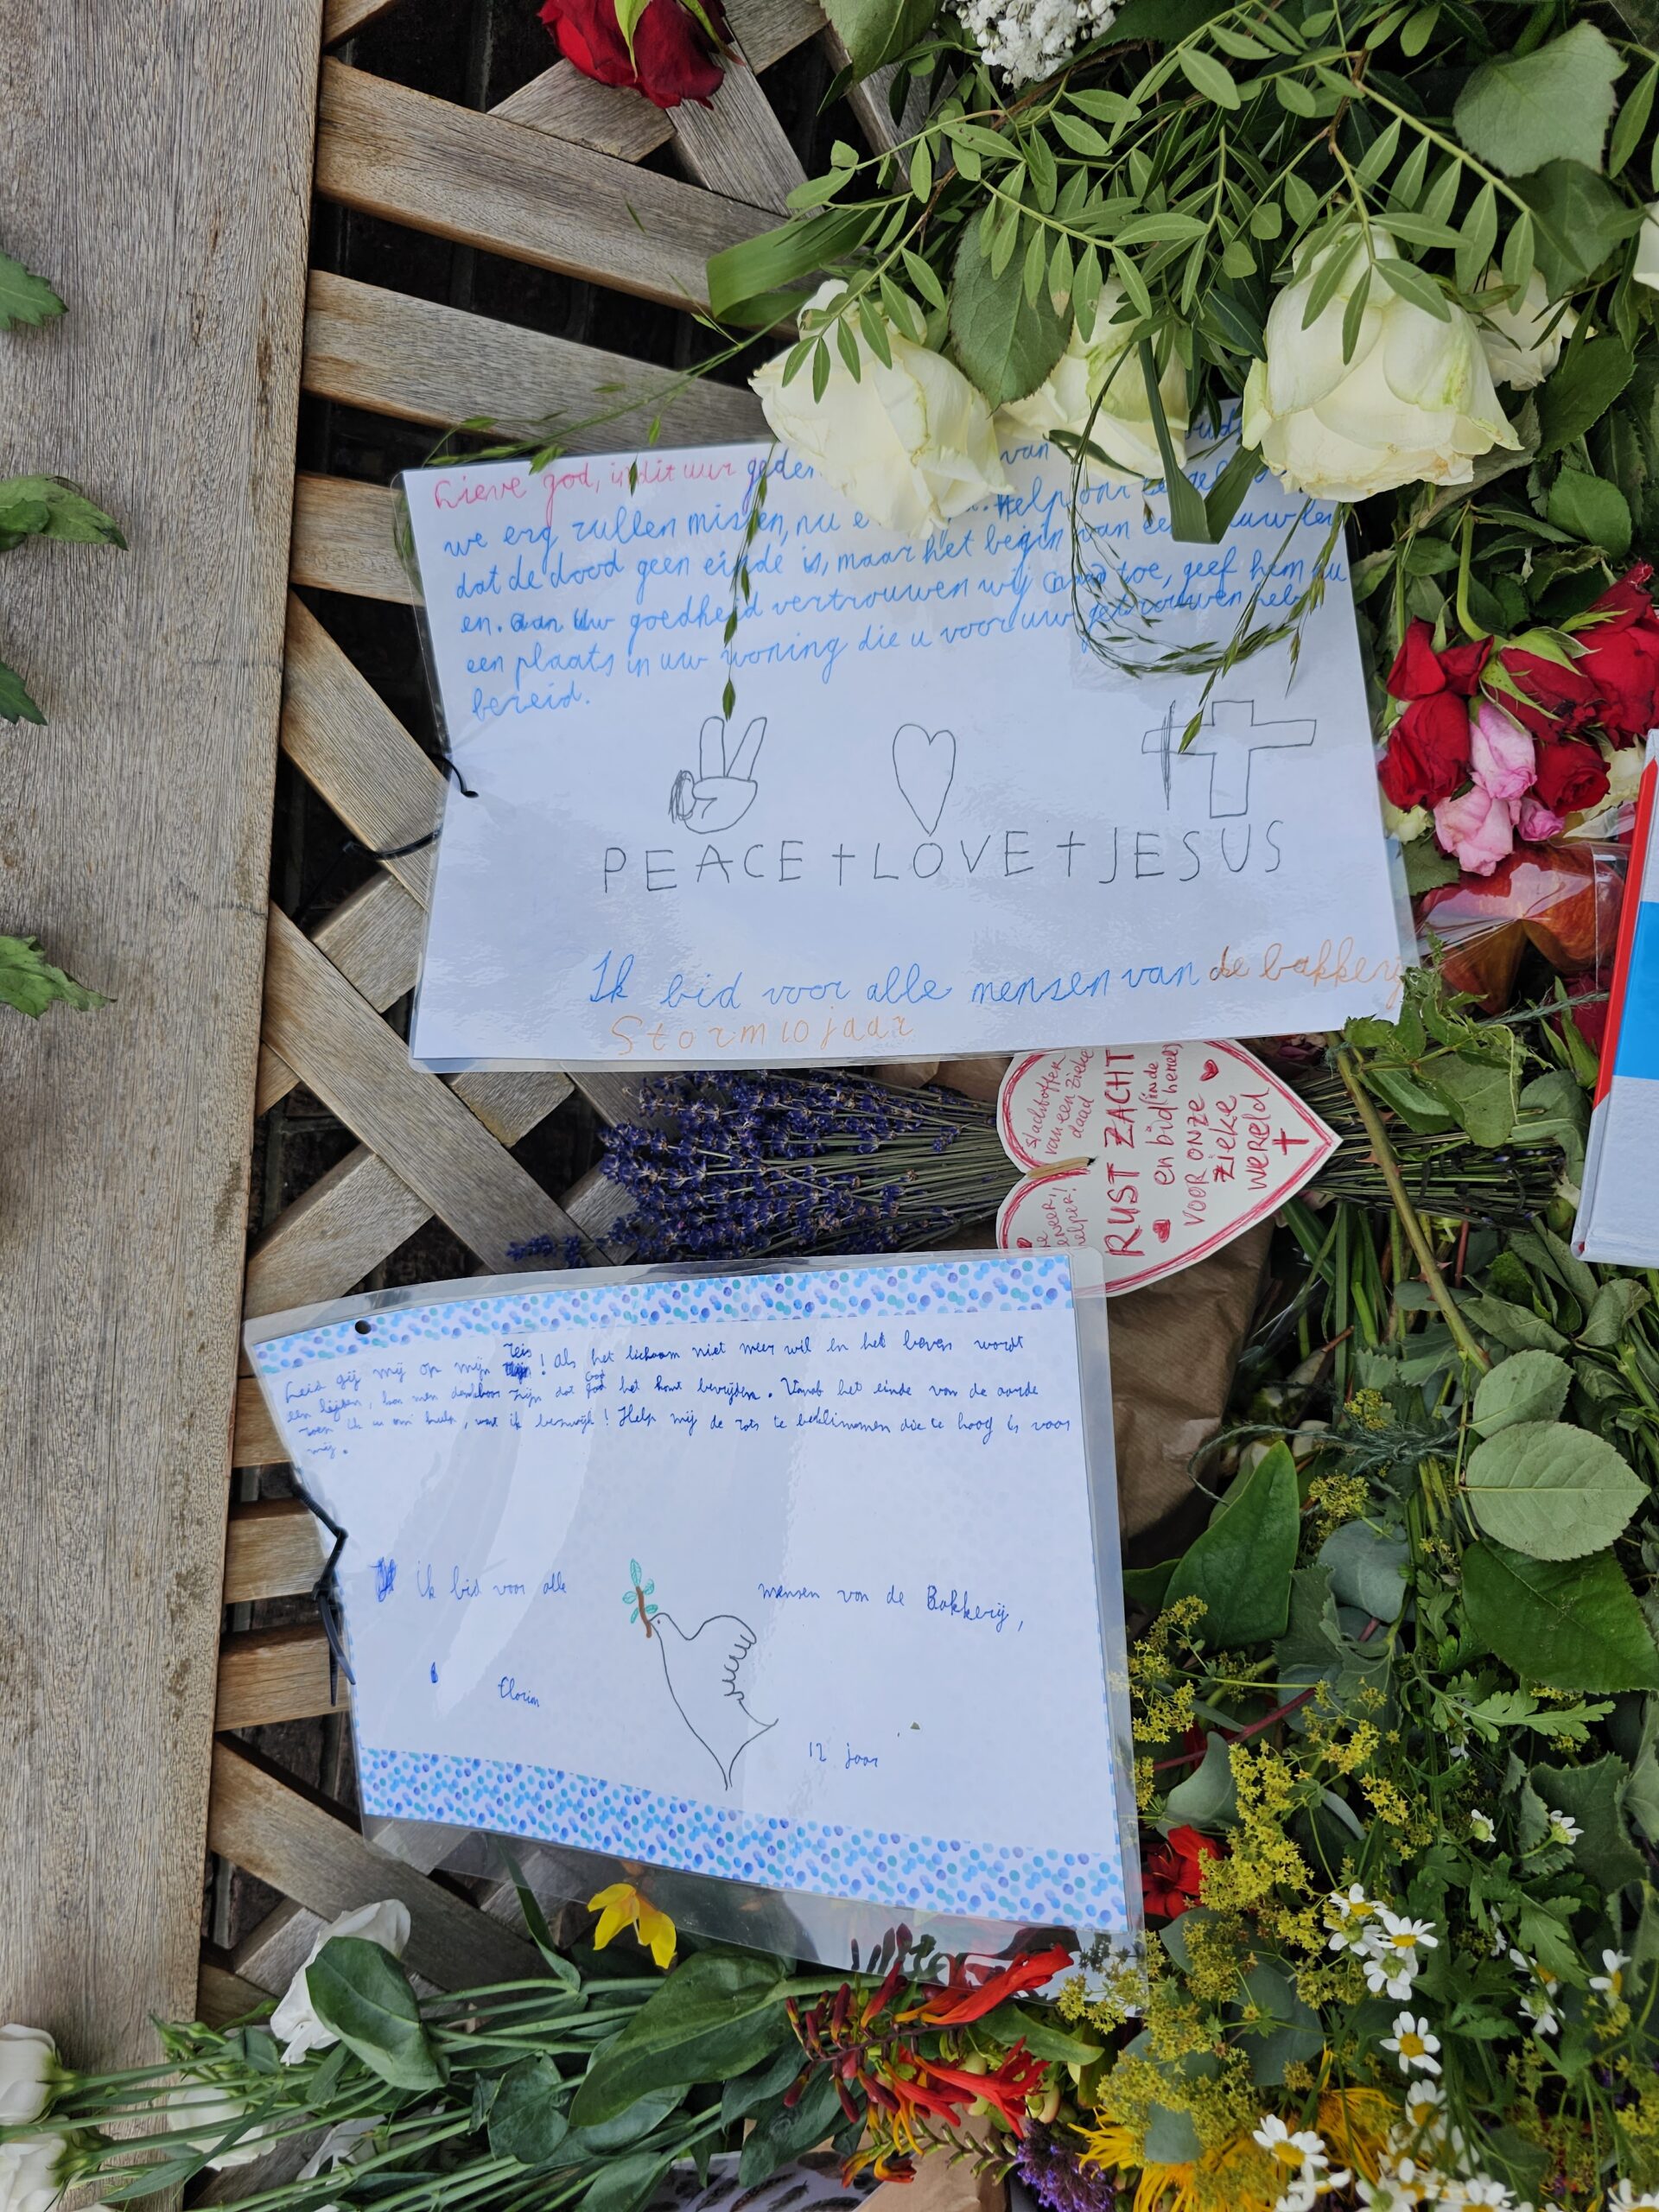 Lieve god, in dit uur geden van
we erg zullen missen, nu Help ons
dat de dood geen einde is, maar het begin van
en. aan Uw goedheid vertrouwen wij toe, geef hem nu
een plaats in uw woning die u voor uw getrouwen heb
bereid.
PEACE + LOVE + JESUS
Ik bid voor alle mensen van de bakkerij
Storm 10 jaar
Slachtoffer
van een zieke
daad
RUST ZACHT
en bid in de hemel
VOOR ONZE
ZIEKE
WERELD
Leid gij mij op mijn reis! Als het lichaam niet meer wil en het leven wordt
een lijden, laat men dankbaar zijn dat God het komt bevrijden. Vanaf het einde van de aarde
roep ik u om hulp, want ik bezwijk! Help mij de rots te beklimmen die te hoog is voor
mij.
ik bid voor alle mensen van de Bakkerij,
12 jaar